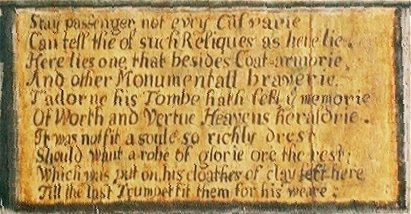 Stay passenger not evry Calvarie
Can tell the of such Reliques as here lie.
Here lies one, that besides Coat-armorie,
And other Monumentall braverie.
T'adorne his Tombe hath left y memorie
Of Worth and Vertue Heavens heraldrie.
It was not fit a soule so richly drest
Should want a robe of glorie ore the rest:
Which was put on, his cloathes of clay left here
Till the last Trumpet fit them for his weare: